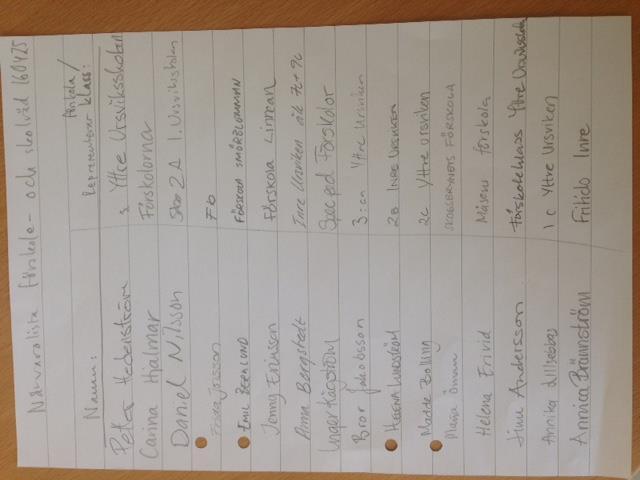 Närvarolista förskole- och skolråd 160425
Namn: Representerar klass: Förskola/
Peter Hedenström 2 Yttre Ursviksskolan
Carina Hjalmar Förskolorna
Daniel Nilsson 2A I. Ursviksskolan
Jonsson Fb
Emil Berglund Förskola Smörblomman
Jenny Eriksson Förskola Linnean
Anna Bergstedt Inre Ursviken åk 7c + 9c
Inger Spec ped Förskolor
Bror Jakobsson 3:an Yttre Ursviken
Helena Lundström 2B Inre Ursviken
Madde Bolling 2c Yttre Ursviken
Maria Öman Skogsbrynets Förskola
Helena Frivid Måsens förskola
Jinu Andersson Förskoleklass Yttre Ursviksskolan
Annika Lillsebbas 1c Yttre Ursviken
Annica Brännström Fritids Inre